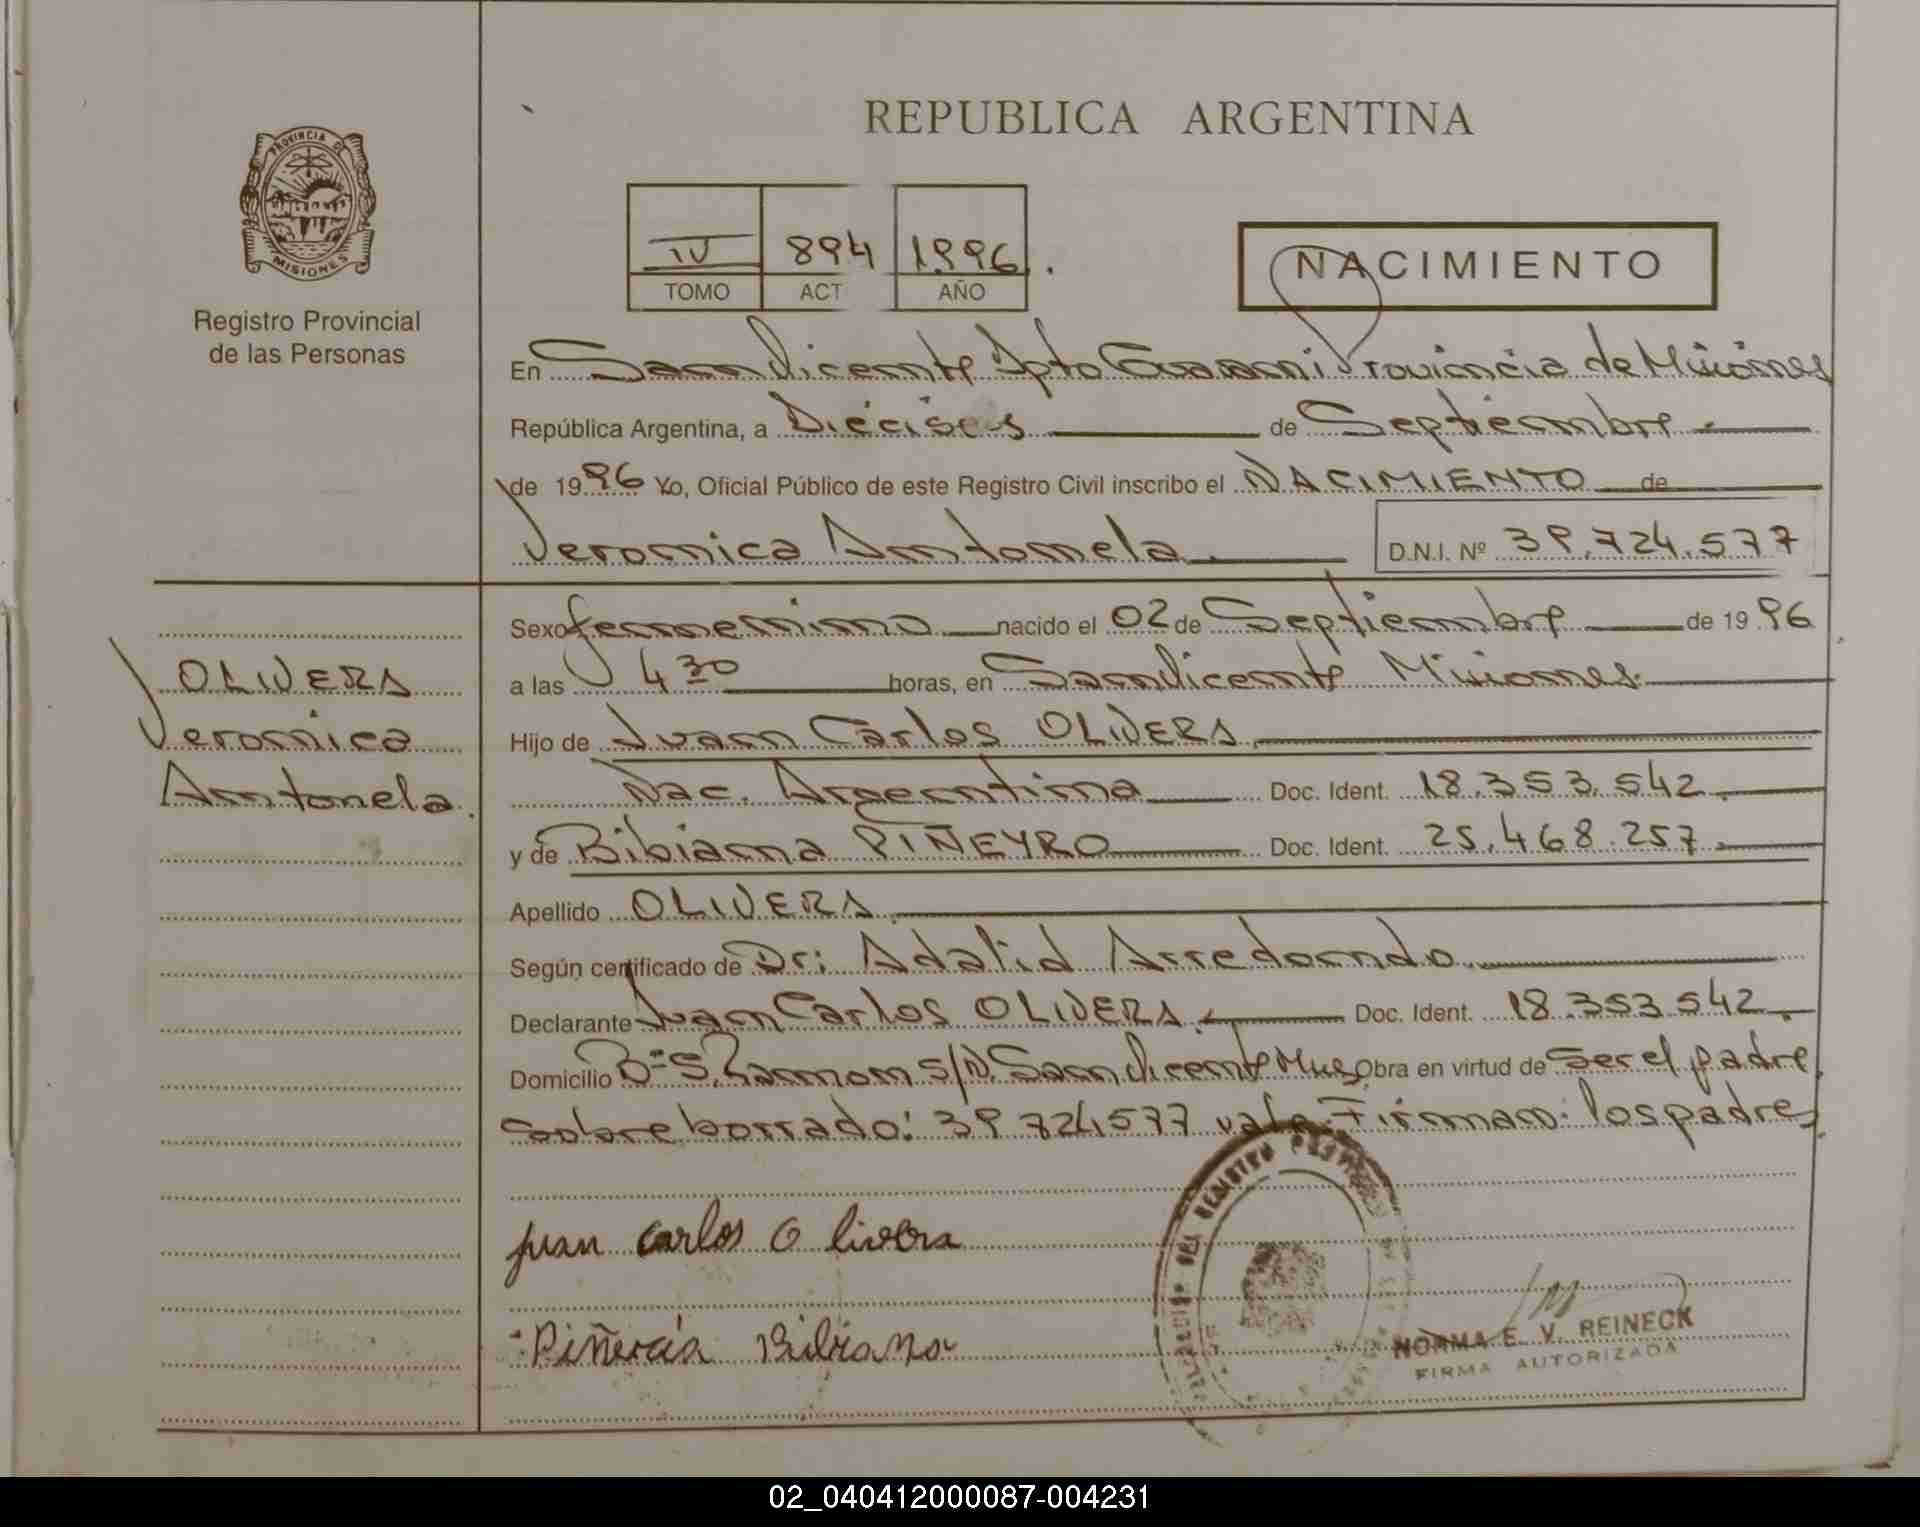 REPUBLICA ARGENTINA
PROVINCIA DE
MISIONES
Registro Provincial
de las Personas
IV 894 1996.
TOMO ACT AÑO
NACIMIENTO
En San Vicente Dpto Guarani Provincia de Misiones
República Argentina, a Dieciseis de Septiembre
de 1996 Yo, Oficial Público de este Registro Civil inscribo el NACIMIENTO de
Veronica Antonela D.N.I. Nº 39.724.577
Sexo femenino nacido el 02 de Septiembre de 1996
a las 4 30 horas, en San Vicente Misiones
Hijo de Juan Carlos OLIVERA
Nac. Argentina Doc. Ident. 18.353.542
y de Bibiana PIÑEYRO Doc. Ident. 25.468.257
Apellido OLIVERA
Según certificado de Dr: Adalid Arredondo
Declarante Juan Carlos OLIVERA Doc. Ident. 18.353.542
Domicilio Bº S. Ramon S/N. San Vicente Mnes Obra en virtud de Ser el padre
Sobre borrado: 39 724577 vale. Firman: los padres
OLIVERA
Veronica
Antonela.
juan carlos Olivera
Bibiana
DEL REGISTRO
NORMA E. V. REINECK
FIRMA AUTORIZADA
02_040412000087-004231